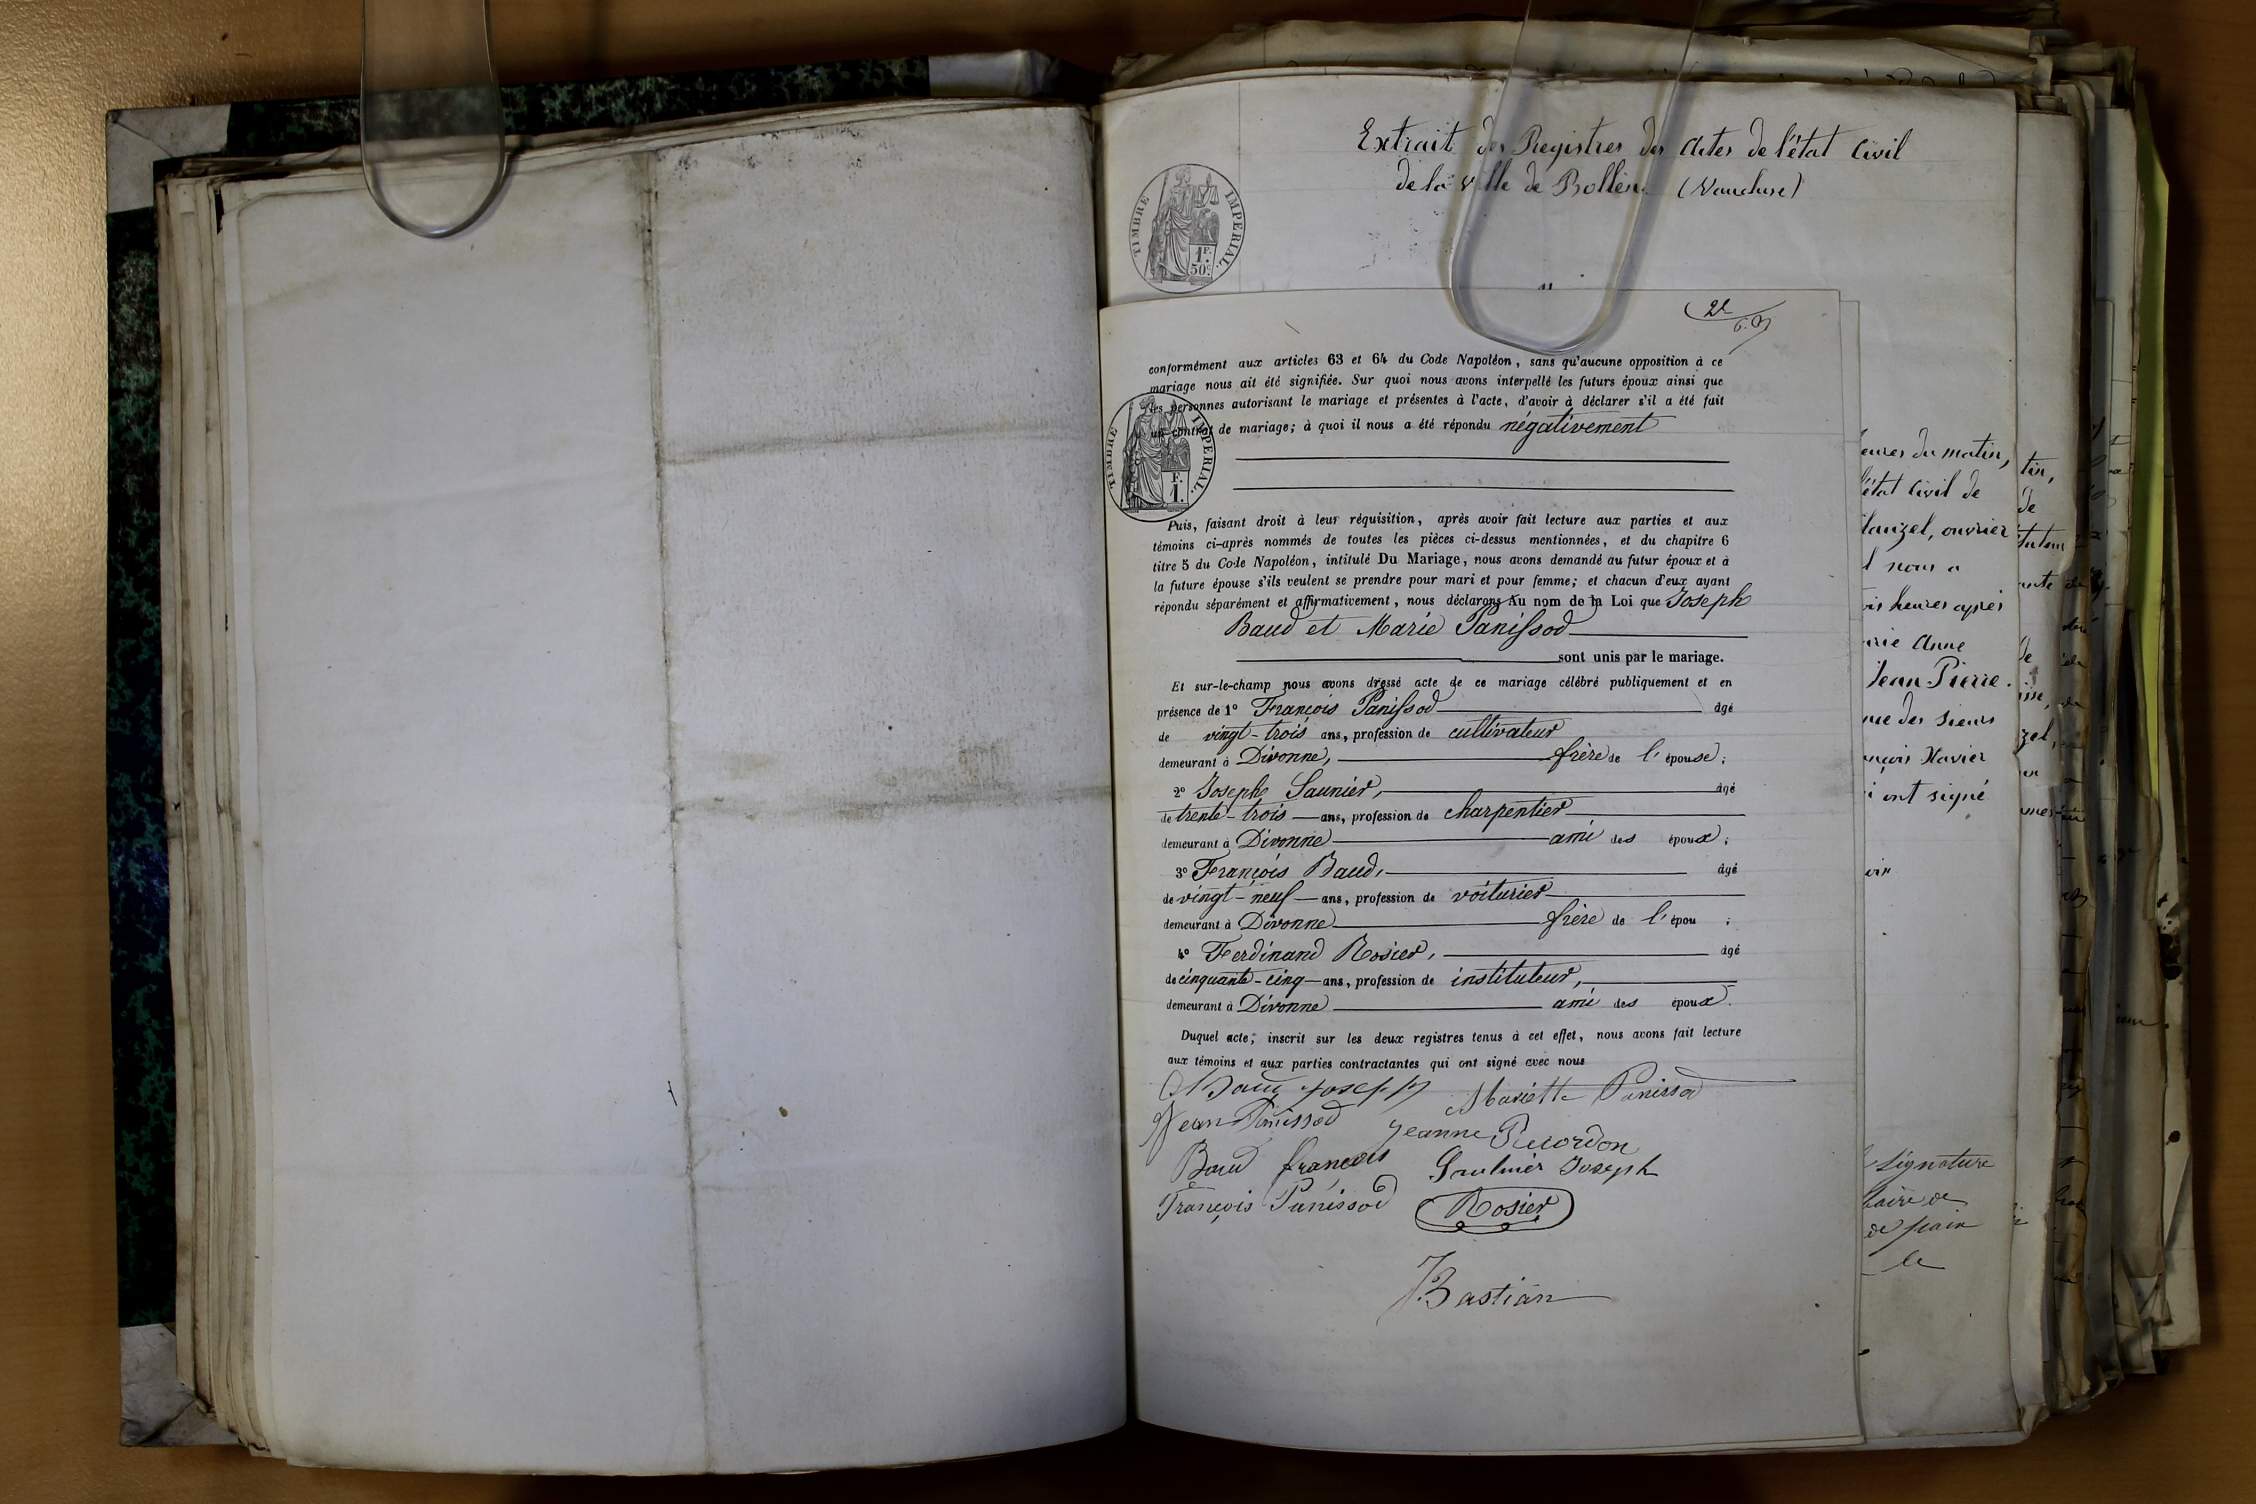 Extrait des Registres des Actes de l'état Civil
de la ville de Bollène (Vaucluse)
TIMBRE IMPÉRIAL.
1F.
50c.
2e
conformément aux articles 63 et 64 du Code Napoléon, sans qu'aucune opposition à ce
mariage nous ait été signifiée. Sur quoi nous avons interpellé les futurs époux ainsi que
les personnes autorisant le mariage et présentes à l'acte, d'avoir à déclarer s'il a été fait
un contrat de mariage; à quoi il nous a été répondu négativement
TIMBRE IMPÉRIAL.
F.
1.
Puis, faisant droit à leur réquisition, après avoir fait lecture aux parties et aux
témoins ci-après nommés de toutes les pièces ci-dessus mentionnées, et du chapitre 6
titre 5 du Code Napoléon, intitulé Du Mariage, nous avons demandé au futur époux et à
la future épouse s'ils veulent se prendre pour mari et pour femme; et chacun d'eux ayant
répondu séparément et affirmativement, nous déclarons Au nom de la Loi que Joseph
Baud et Marie Panissod
sont unis par le mariage.
Et sur-le-champ nous avons dressé acte de ce mariage célébré publiquement et en
présence de 1º François Panissod âgé
de vingt-trois ans, profession de cultivateur
demeurant à Divonne, frère de l'épouse;
2º Joseph Saunier, âgé
de trente-trois ans, profession de charpentier
demeurant à Divonne ami des époux;
3º François Baud, âgé
de vingt-neuf ans, profession de voiturier
demeurant à Divonne frère de l'épou ;
4º Ferdinand Rosier, âgé
de cinquante-cinq ans, profession de instituteur,
demeurant à Divonne ami des époux.
Duquel acte, inscrit sur les deux registres tenus à cet effet, nous avons fait lecture
aux témoins et aux parties contractantes qui ont signé avec nous
Baud Joseph Mariette Panissod
Jean Panissod Jeanne Recordon
Baud françois Saulnier Joseph
François Panissod Rosier
Bastian
eures du matin,
l'état Civil de
lauzel, ouvrier
nous a
heures après
rie Anne
Jean Pierre.
des sieurs
Xavier
ont signé
signature
de
le